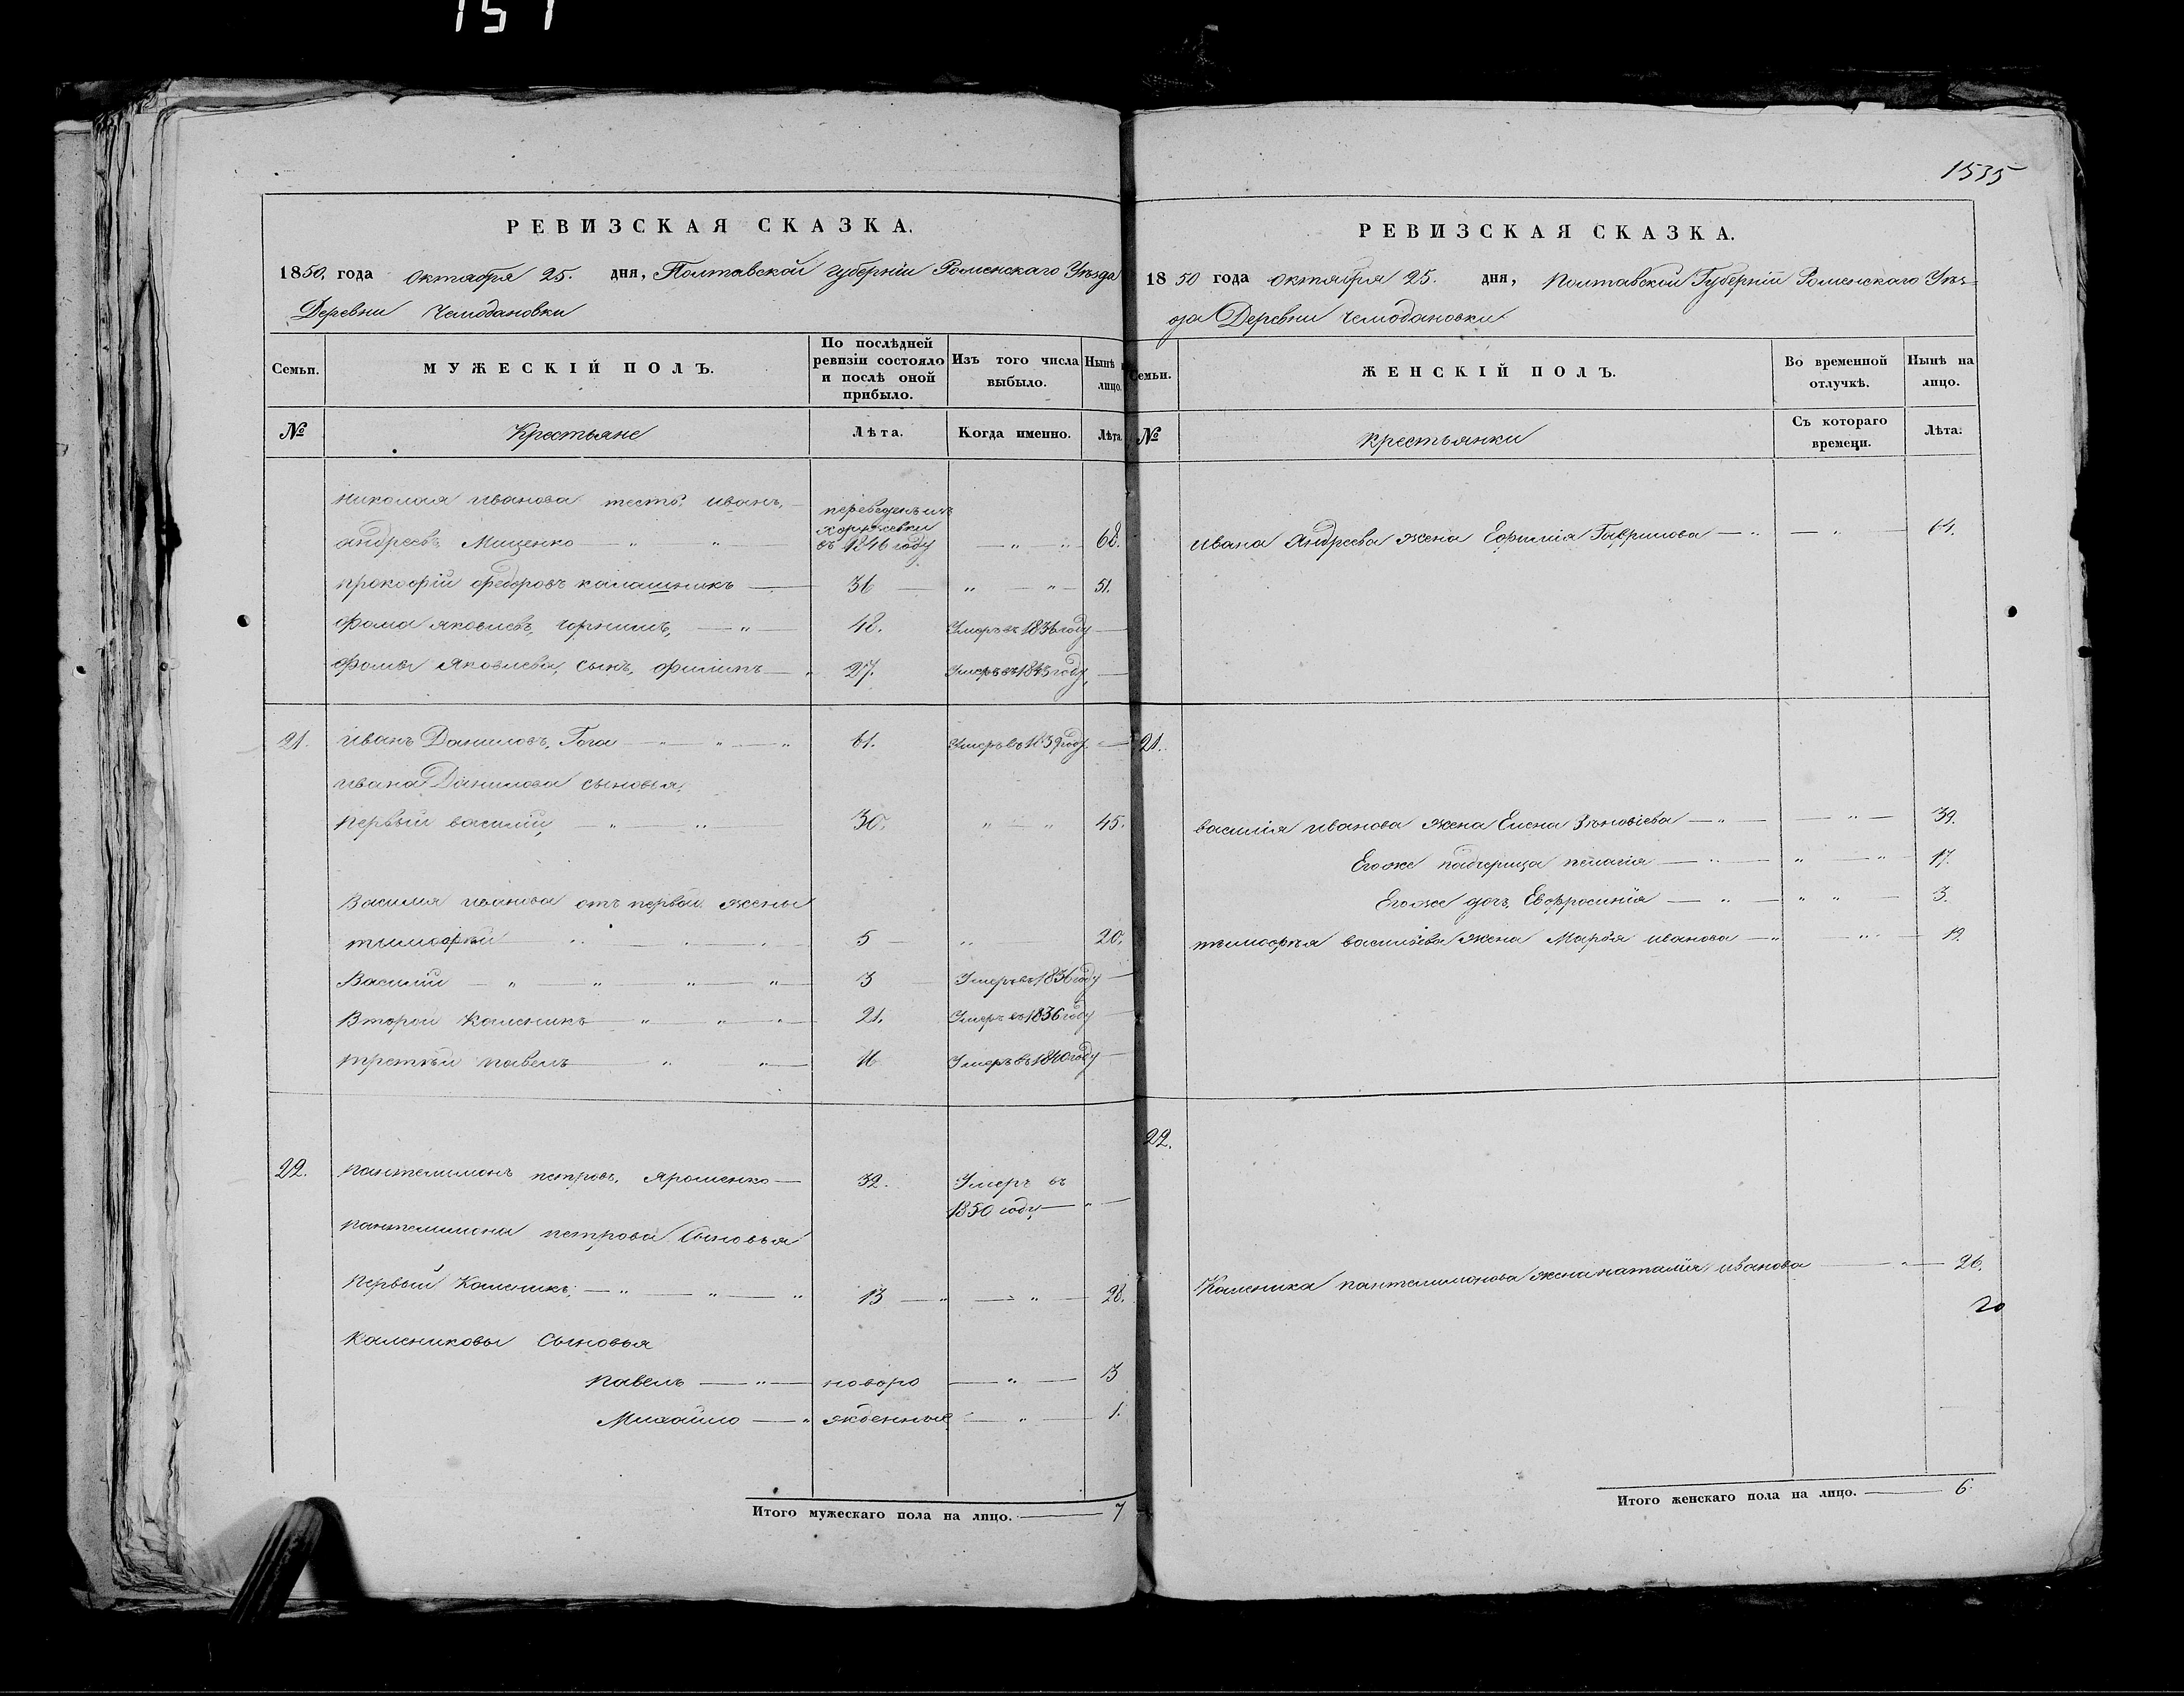 151
1535
РЕВИЗСКАЯ СКАЗКА.
1850, года октября 25. дня, Полтавской губерніи Роменскаго Уѣзда
Деревни Чемодановки
Семьи. МУЖЕСКІЙ ПОЛЪ. По послѣдней ревизіи состояло и послѣ оной прибыло. Изъ того числа выбыло. Нынѣ лицо.
№ Крестьяне Лѣта. Когда именно. Лѣта
николая иванова тесть иванъ,
андреевъ Миценко переведенъ въ 1846 году 68.
прокофій федоровъ калашникъ 36 51.
фома яковлевъ, 48. Умеръ въ 1836 году
фомы яковлева, сынъ, филипъ 27. Умеръ въ 1843 году
21. иванъ Даниловъ, Гога 61. Умеръ въ 1839 году
ивана Данилова сыновья,
первый василій, 30. 45.
Василия иванова отъ первой жены
тимофѣй 5 20.
Василій 3 Умеръ въ 1836 году
Второй Каленикъ 21. Умеръ въ 1836 году
третьи павелъ Умеръ въ 1840 году
22. пантелимонъ петровъ, Ярошенко 32. Умеръ въ
1850 году
пантелимона петрова Сыновья
первый Каленикъ, 13 28.
калениковы Сыновья
павелъ новоро 3
Михайло жденные 1.
Итого мужескаго пола на лицо. 7
РЕВИЗСКАЯ СКАЗКА.
1850 года октября 25. дня, Полтавской Губерніи Роменскаго Уѣз-
да Деревни Чемодановки
Семьи. ЖЕНСКІЙ ПОЛЪ. Во временной отлучкѣ. Нынѣ на лицо.
№ крестьянки Съ котораго времени. Лѣта.
ивана Андреева жена Ефимія Гаврилова 64.
21.
василія иванова жена Елена Зѣновіева 39.
Егоже падчерица пелагія 17.
Егоже дочь, Евфросинія 3.
тимофѣя василіева жена Марѳа иванова 19.
22.
Каленика пантелимонова жена наталія иванова 26.
20
Итого женскаго пола на лицо. 6